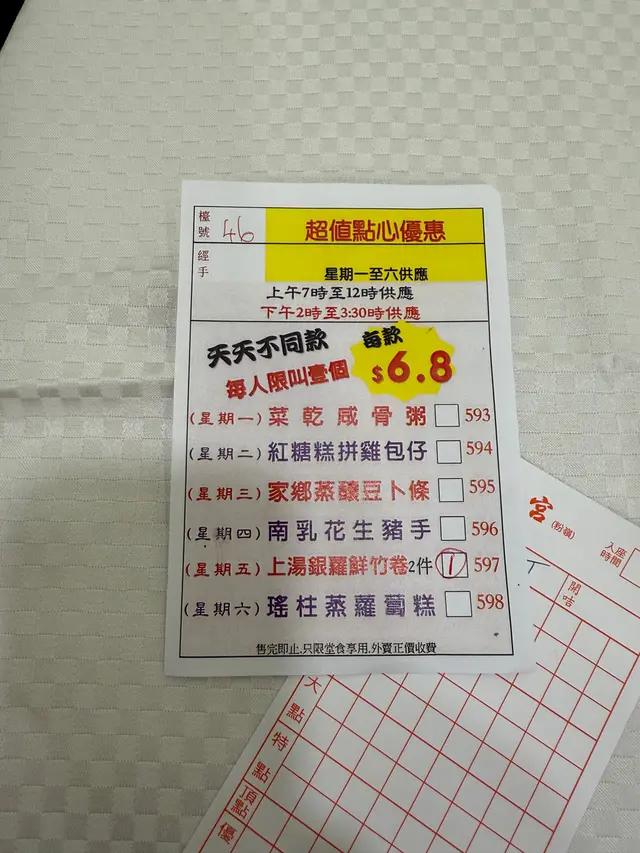 檯號 46 超值點心優惠
經手 星期一至六供應
上午7時至12時供應
下午2時至3:30時供應
天天不同款 每款
每人限叫壹個 $6.8
(星期一) 菜乾咸骨粥 593
(星期二) 紅糖糕拼雞包仔 594
(星期三) 家鄉蒸釀豆卜條 595
(星期四) 南乳花生豬手 596
(星期五) 上湯銀蘿鮮竹卷2件 1 597
(星期六) 瑤柱蒸蘿蔔糕 598
售完即止.只限堂食享用.外賣正價收費
宮 (粉嶺)
入座時間
開咭
大點
特點
頂點
優